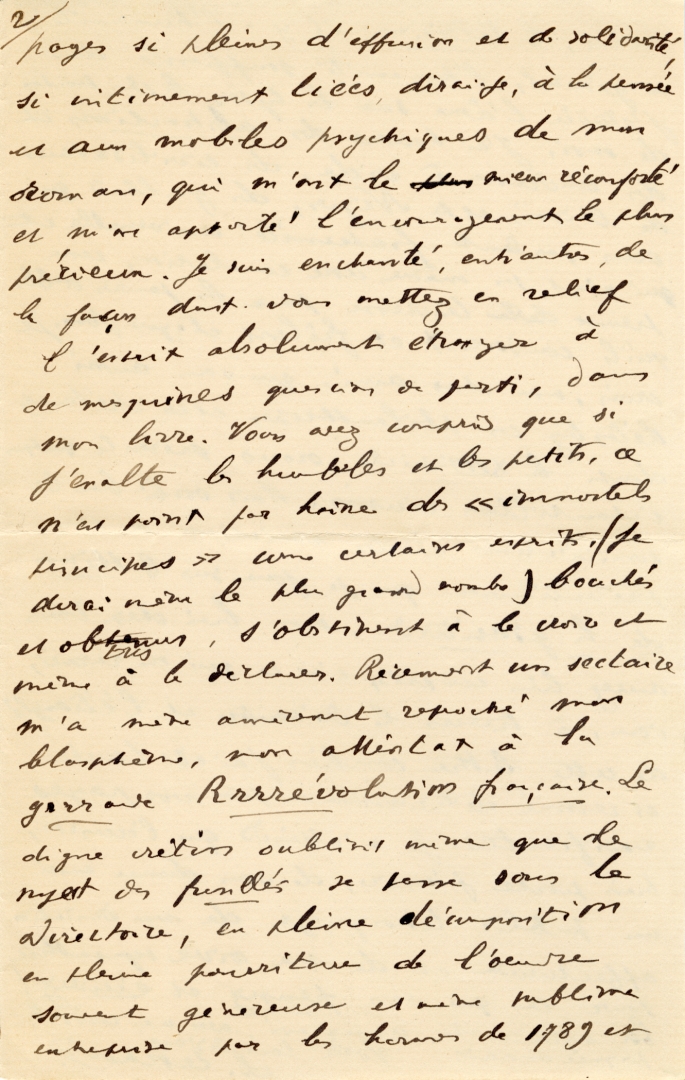 2/
pages si pleines d'effusion et de solidarité,
si intimement liées, dirai-je, à la pensée
et aux mobiles psychiques de mon
roman, qui m'ont le plus mieux réconforté
et m'ont apporté l'encouragement le plus
précieux. Je suis enchanté, entr'autres, de
la façon dont vous mettez en relief
l'esprit absolument étranger à
de mesquines questions de parti, dans
mon livre. Vous avez compris que si
j'exalte les humbles et les petits, ce
n'est point par haine des « immortels
principes » comme certains esprits, (je
dirai même le plus grand nombre) bouchés
et obtus, s'obstinent à le croire et
même à le déclarer. Récemment un sectaire
m'a même amèrement reproché mon
blasphème, mon attentat à la
grrrande Rrrrévolution française. Le
digne crétin oubliait même que le
sujet des fusillés se passe sous le
Directoire, en pleine décomposition
en pleine pourriture de l'oeuvre
souvent généreuse et même sublime
entreprise par les hommes de 1789 et